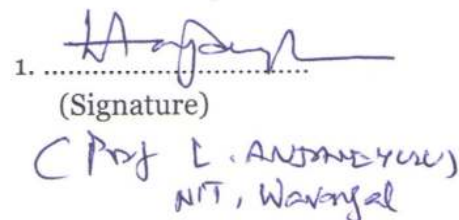 1. ..........................................
(Signature)
(Prof L. ANJANEYULU)
NIT, Warangal